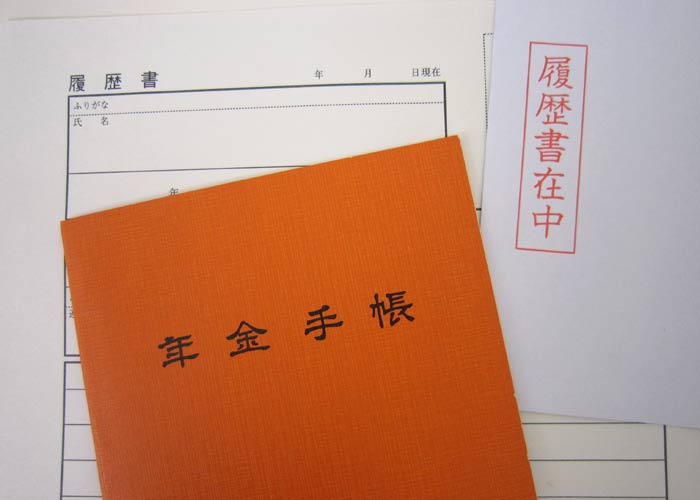 履歴書 年 月 日現在
ふりがな
氏 名
年
年金手帳
履歴書在中